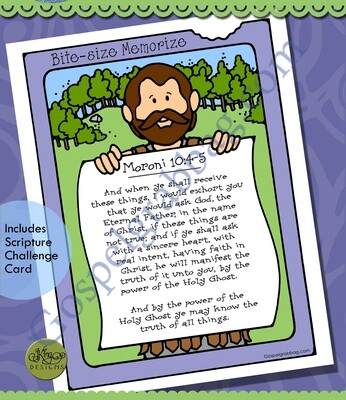 Bite-size Memorize
Moroni 10:4-5
And when ye shall receive
these things, I would exhort you
that ye would ask God, the
Eternal Father, in the name
of Christ, if these things are
not true; and if ye shall ask
with a sincere heart, with
real intent, having faith in
Christ, he will manifest the
truth of it unto you, by the
power of the Holy Ghost.
And by the power of the
Holy Ghost ye may know the
truth of all things.
Includes
Scripture
Challenge
Card
Gospelgrabbag.com
Gospelgrabbag.com
DESIGNS